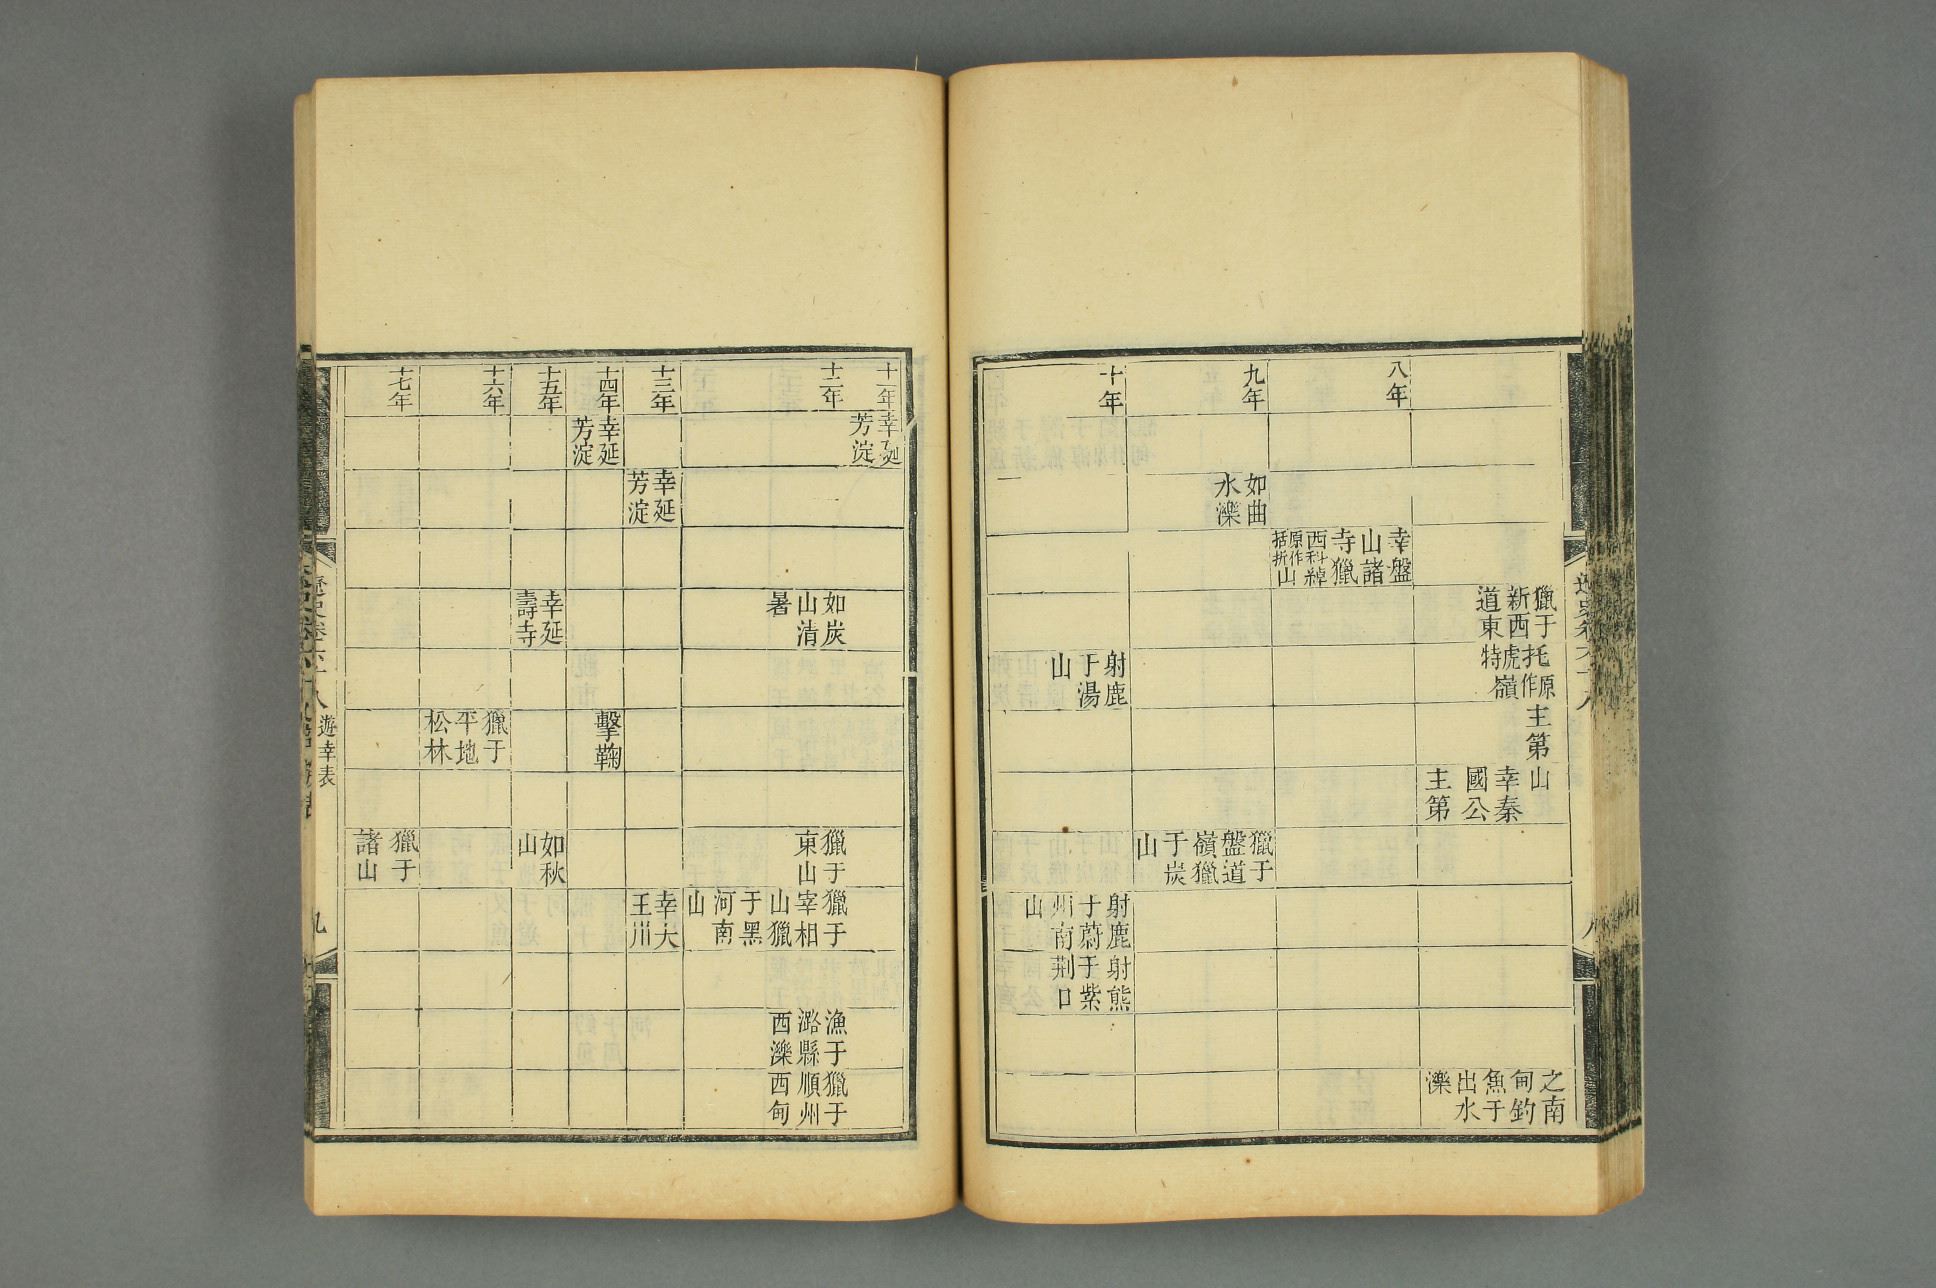 遼史卷六十八
獵于
新西
道東
托原
虎作
特嶺
主第
山
幸秦
國公
主第
之南
甸釣
魚于
出水
濼
八年
幸盤
山諸
寺獵
西科綽
原作
括折山
九年
如曲
水濼
獵于
盤道
嶺獵
于炭
山
十年
射鹿
于湯
山
射鹿
于蔚
州南
山
射熊
于紫
荆口
十一年
幸延
芳淀
十二年
如炭
山清
暑
獵于
東山
獵于
宰相
山獵
于黑
河南
山
漁于
潞縣
西濼
獵于
順州
西甸
十三年
幸延
芳淀
幸大
王川
十四年
幸延
芳淀
擊鞠
十五年
幸延
壽寺
如秋
山
十六年
獵于
平地
松林
十七年
獵于
諸山
遼史卷六十八
遊幸表
九